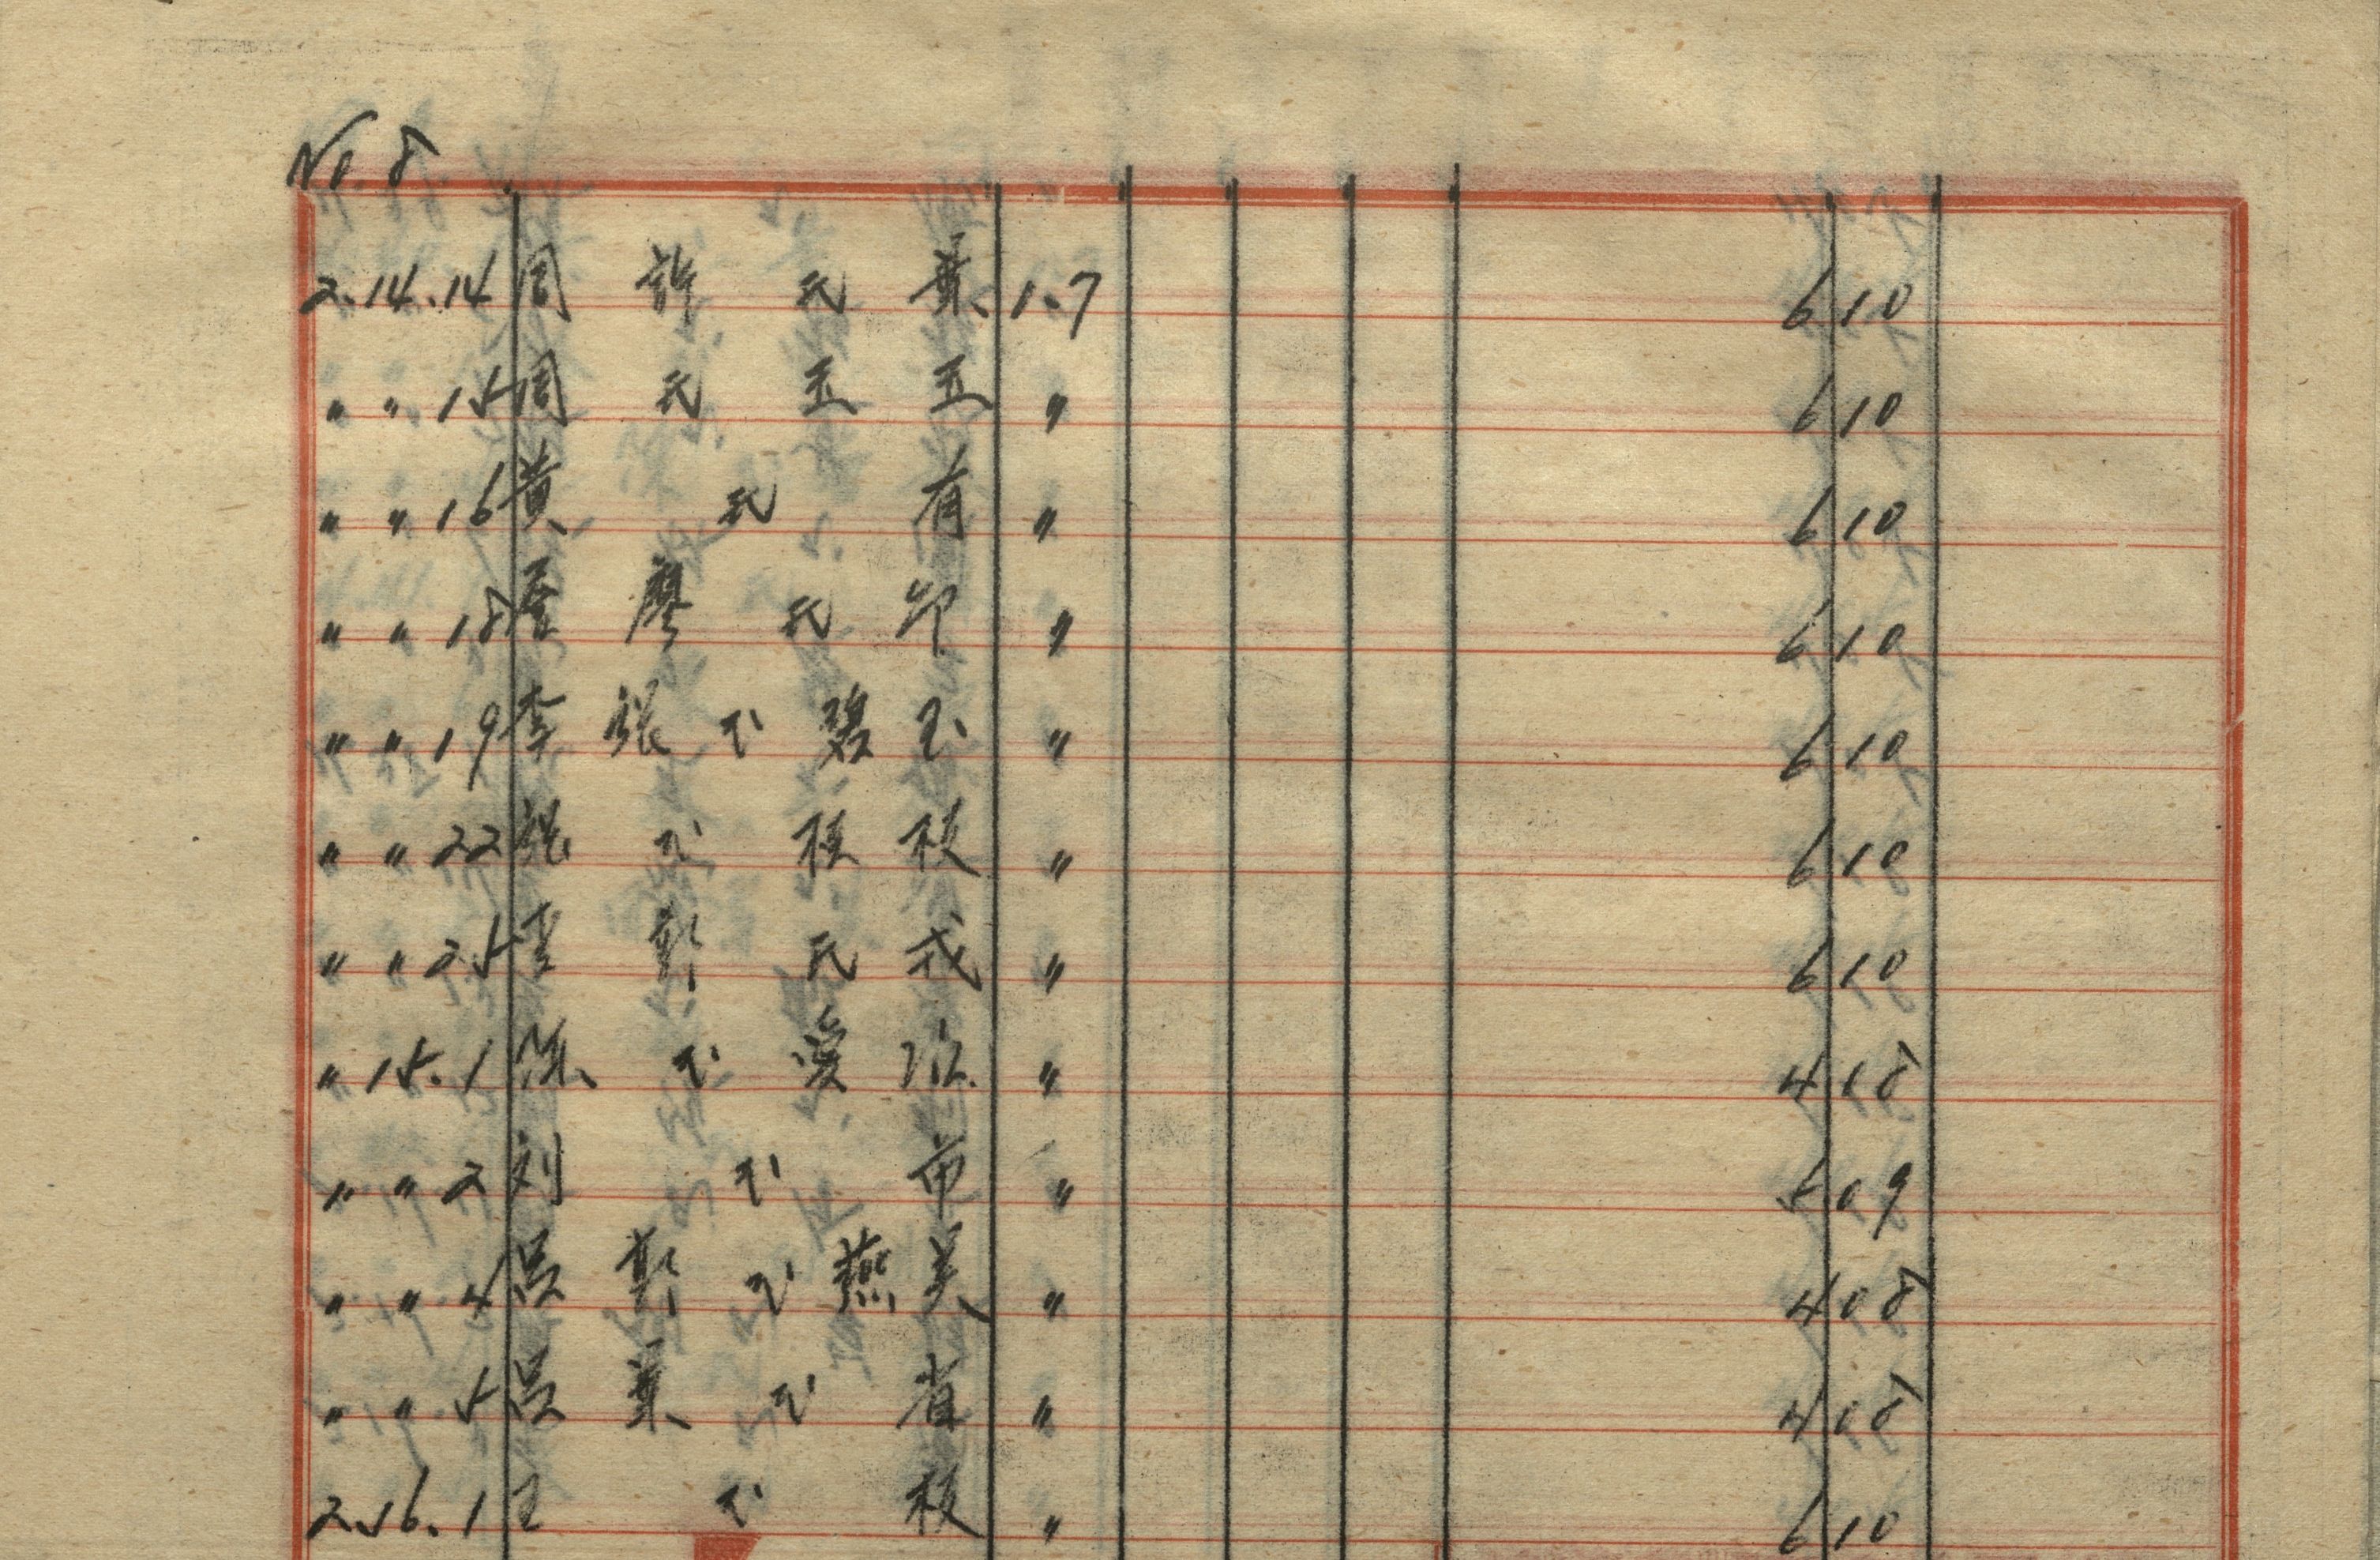 No. 8
2.14.14 周許氏葉 1.7 6 10
〃 〃 15 周氏玉玉 〃 6 10
〃 〃 16 黄氏有 〃 6 10
〃 〃 18 廖氏卯 〃 6 10
〃 〃 19 李張氏碧玉 〃 6 10
〃 〃 22 張氏桂枝 〃 6 10
〃 〃 25 李彭氏戎 〃 6 10
〃 15.1 陳氏愛 〃 4 08
〃 〃 2 刘氏市 〃 5 09
〃 〃 4 呂彭氏燕美 〃 4 08
〃 〃 5 呂葉氏省 〃 4 08
2.16.1 王氏枝 〃 6 10